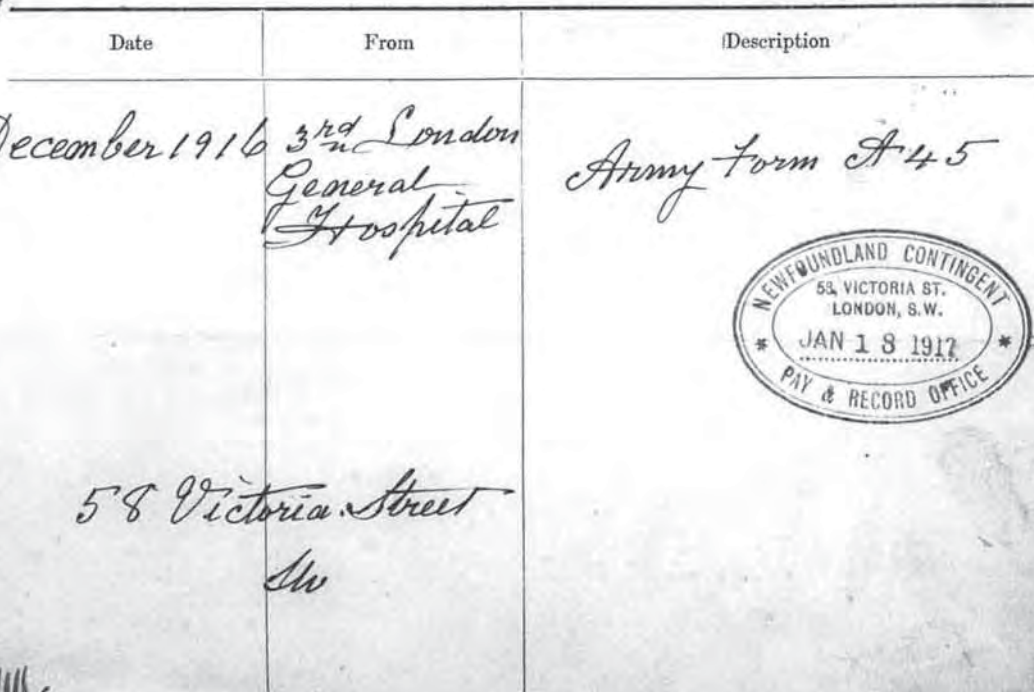 Date From Description
December 1916 3rd London
General
Hospital
Army Form A45
NEWFOUNDLAND CONTINGENT
58, VICTORIA ST.
LONDON, S.W.
JAN 18 1917
PAY & RECORD OFFICE
58 Victoria Street
SW